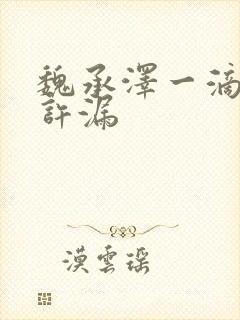 魏承澤一滴
許漏
漠雲瑤